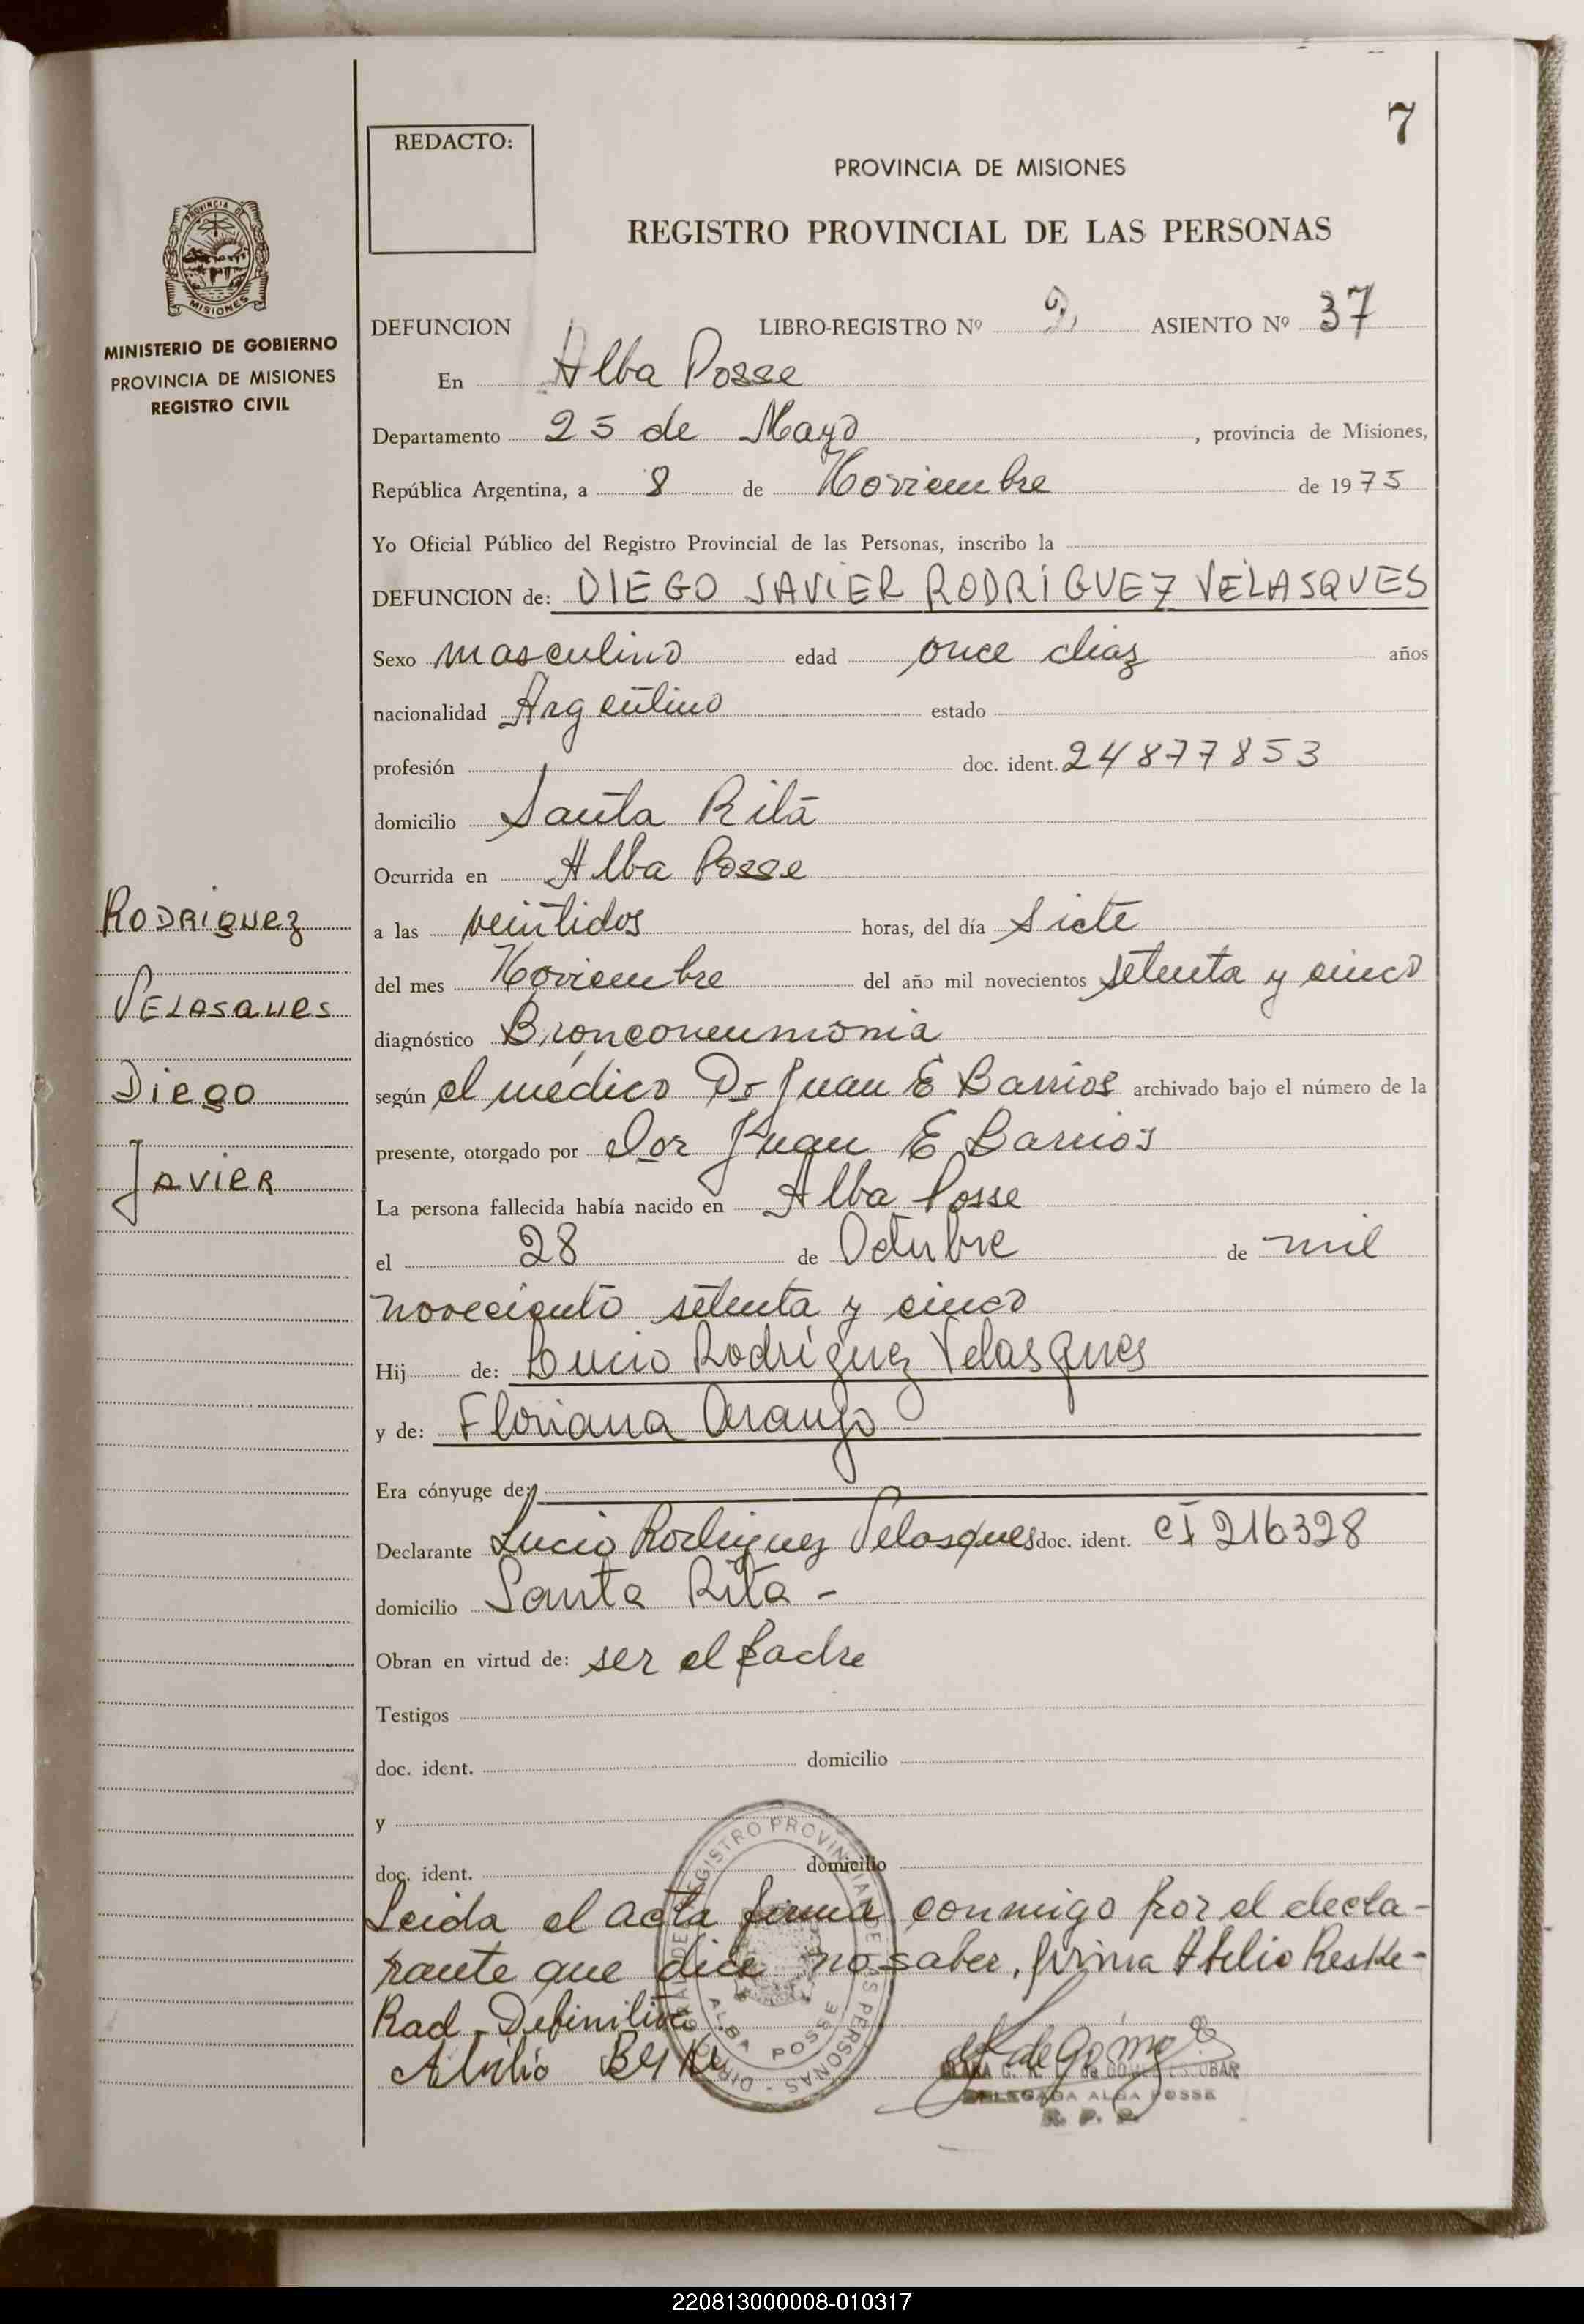 7
REDACTO:
PROVINCIA DE MISIONES
REGISTRO PROVINCIAL DE LAS PERSONAS
PROVINCIA DE
MISIONES
MINISTERIO DE GOBIERNO
PROVINCIA DE MISIONES
REGISTRO CIVIL
DEFUNCION LIBRO-REGISTRO Nº 2 ASIENTO Nº 37
En Alba Posse
Departamento 25 de Mayo, provincia de Misiones,
República Argentina, a 8 de Noviembre de 1975
Yo Oficial Público del Registro Provincial de las Personas, inscribo la
DEFUNCION de: DIEGO JAVIER RODRÍGUEZ VELASQUES
Sexo masculino edad once diaz años
nacionalidad Argentino estado
profesión doc. ident. 24877853
domicilio Santa Rita
Ocurrida en Alba Posse
Rodriguez
Velasques
Diego
Javier
a las veintidos horas, del día Siete
del mes Noviembre del año mil novecientos setenta y cinco
diagnóstico Bronconeumonia
según el médico Dr Juan E Barrios archivado bajo el número de la
presente, otorgado por Dor Juan E Barrios
La persona fallecida había nacido en Alba Posse
el 28 de Octubre de mil
noveciento setenta y cinco
Hij de: Lucio Rodríguez Velasques
y de: Floriana Araujo
Era cónyuge de:
Declarante Lucio Rodriguez Velasques doc. ident. CI 216328
domicilio Santa Rita -
Obran en virtud de: ser el padre
Testigos
doc. ident. domicilio
y
doc. ident. domicilio
Leida el acta firma conmigo por el decla-
rante que dice no saber, firma Atilio Reske-
Rad. Definitiva
Atilio
DIRECCION GRAL. DE REGISTRO PROVINCIAL DE LAS PERSONAS -
ALBA POSSE
de Gómez
CLARA G. K. de GOMEZ ESCOBAR
DELEGADA ALBA POSSE
R. P. P.
220813000008-010317